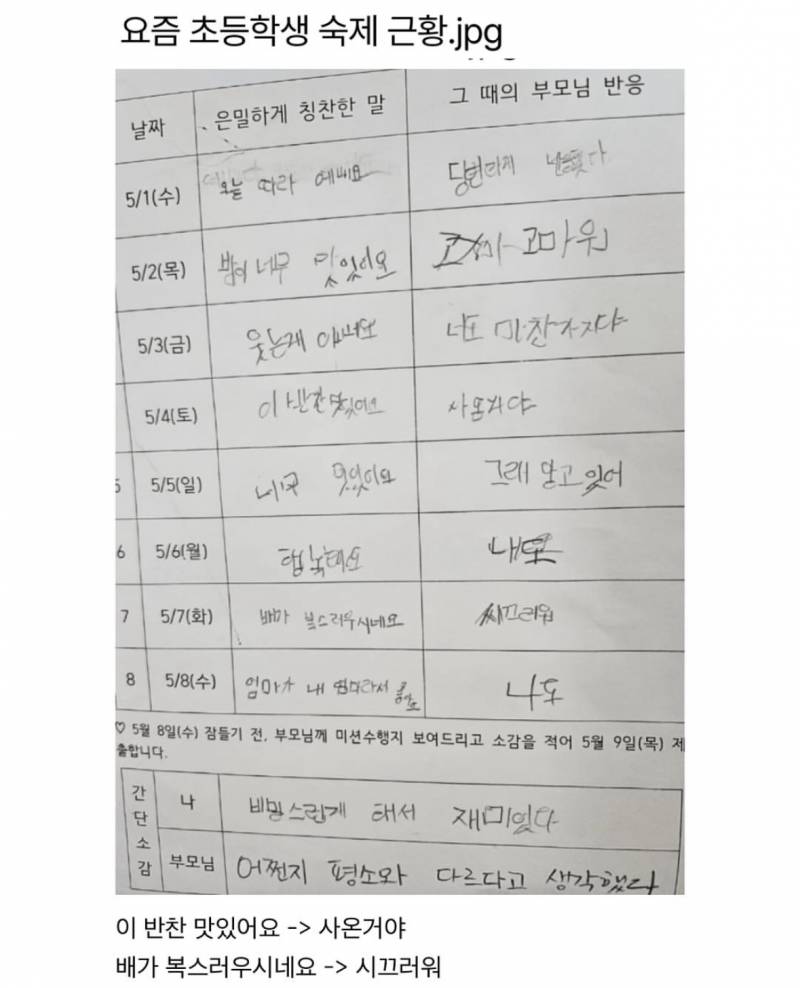 요즘 초등학생 숙제 근황.jpg
날짜 은밀하게 칭찬한 말 그 때의 부모님 반응
5/1(수) 오늘 따라 예뻐요
5/2(목) 밥이 너무 맛있어요 고마워
5/3(금) 웃는게 이뻐요 너도 마찬가지야
5/4(토) 이 반찬 맛있어요 사온거야
5 5/5(일) 그래 알고 있어
6 5/6(월)
7 5/7(화) 배가 복스러우시네요 씨끄러워
8 5/8(수) 엄마가 내 엄마라서 나도
♡ 5월 8일(수) 잠들기 전, 부모님께 미션수행지 보여드리고 소감을 적어 5월 9일(목) 제
출합니다.
간단소감 나 비밀스럽게 해서 재미있다
부모님 어쩐지 평소와 다르다고 생각했다
이 반찬 맛있어요 -> 사온거야
배가 복스러우시네요 -> 시끄러워